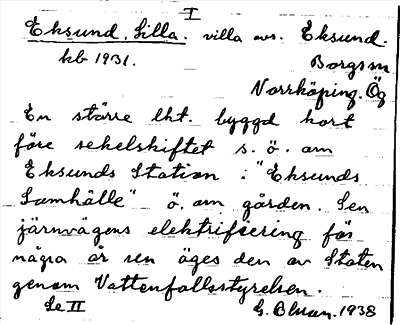 I
Eksund, Lilla. villa avs. Eksund.
kb 1931. Borgs sn
Norrköping. Ög
En större lht. byggd kort
före sekelskiftet s. ö. om
Eksunds Station i "Eksunds
Samhälle" ö. om gården. Sen
järnvägens elektrifiering för
några år sen äges den av Staten
genom Vattenfallsstyrelsen.
Se II G. Blman. 1938